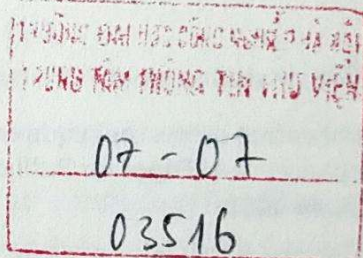 TRƯỜNG ĐẠI HỌC CÔNG NGHIỆP HÀ NỘI
TRUNG TÂM THÔNG TIN THƯ VIỆN
07-07
03516